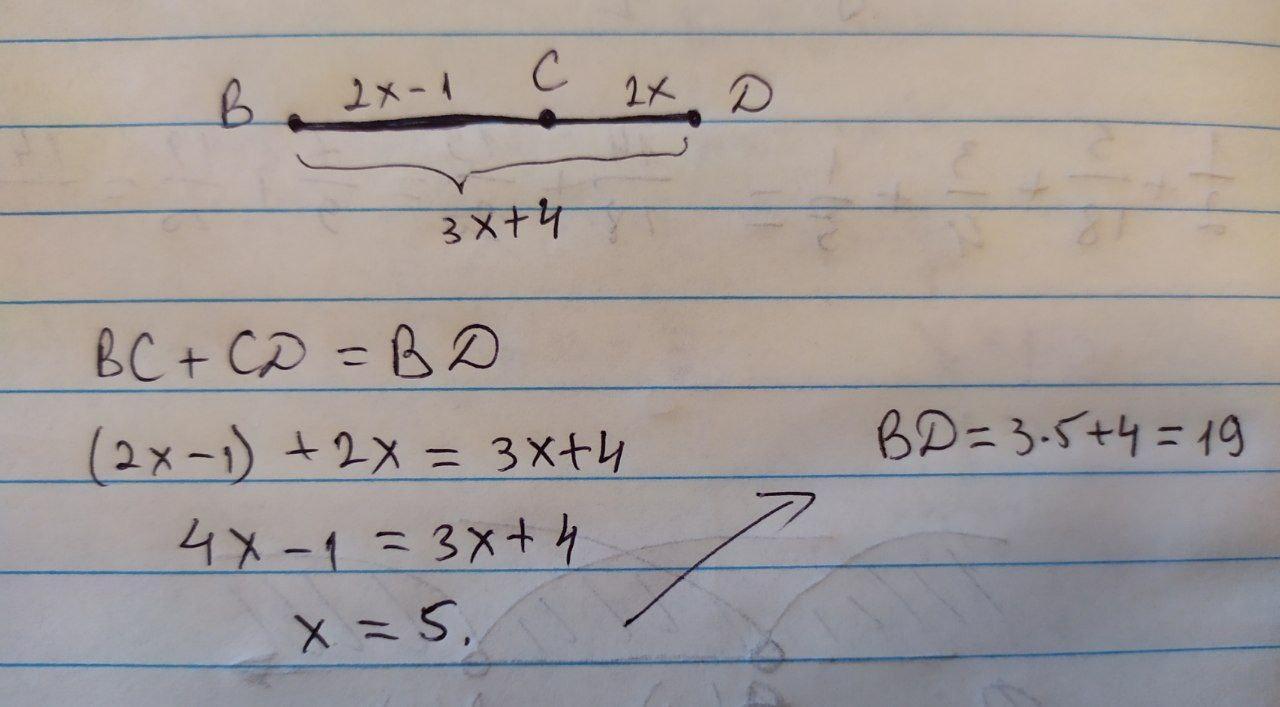 B 2x-1 C 2x D
3x+4
BC + CD = BD
(2x-1) + 2x = 3x+4
BD = 3·5+4 = 19
4x - 1 = 3x+4
x = 5.